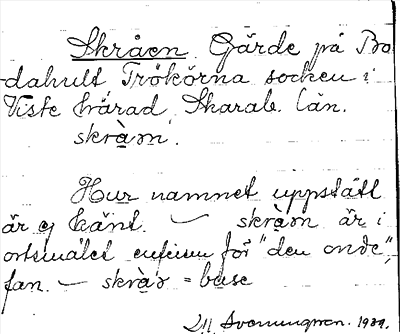 Skråen Gärde på Bo
dahult Trökörna socken i
Viste härad, Skarab. län.
skràm.
Hur namnet uppstått
är ej känt. — skràm är i
ortsmålet eufeism för "den onde",
fan. — skràr = buse
1929.